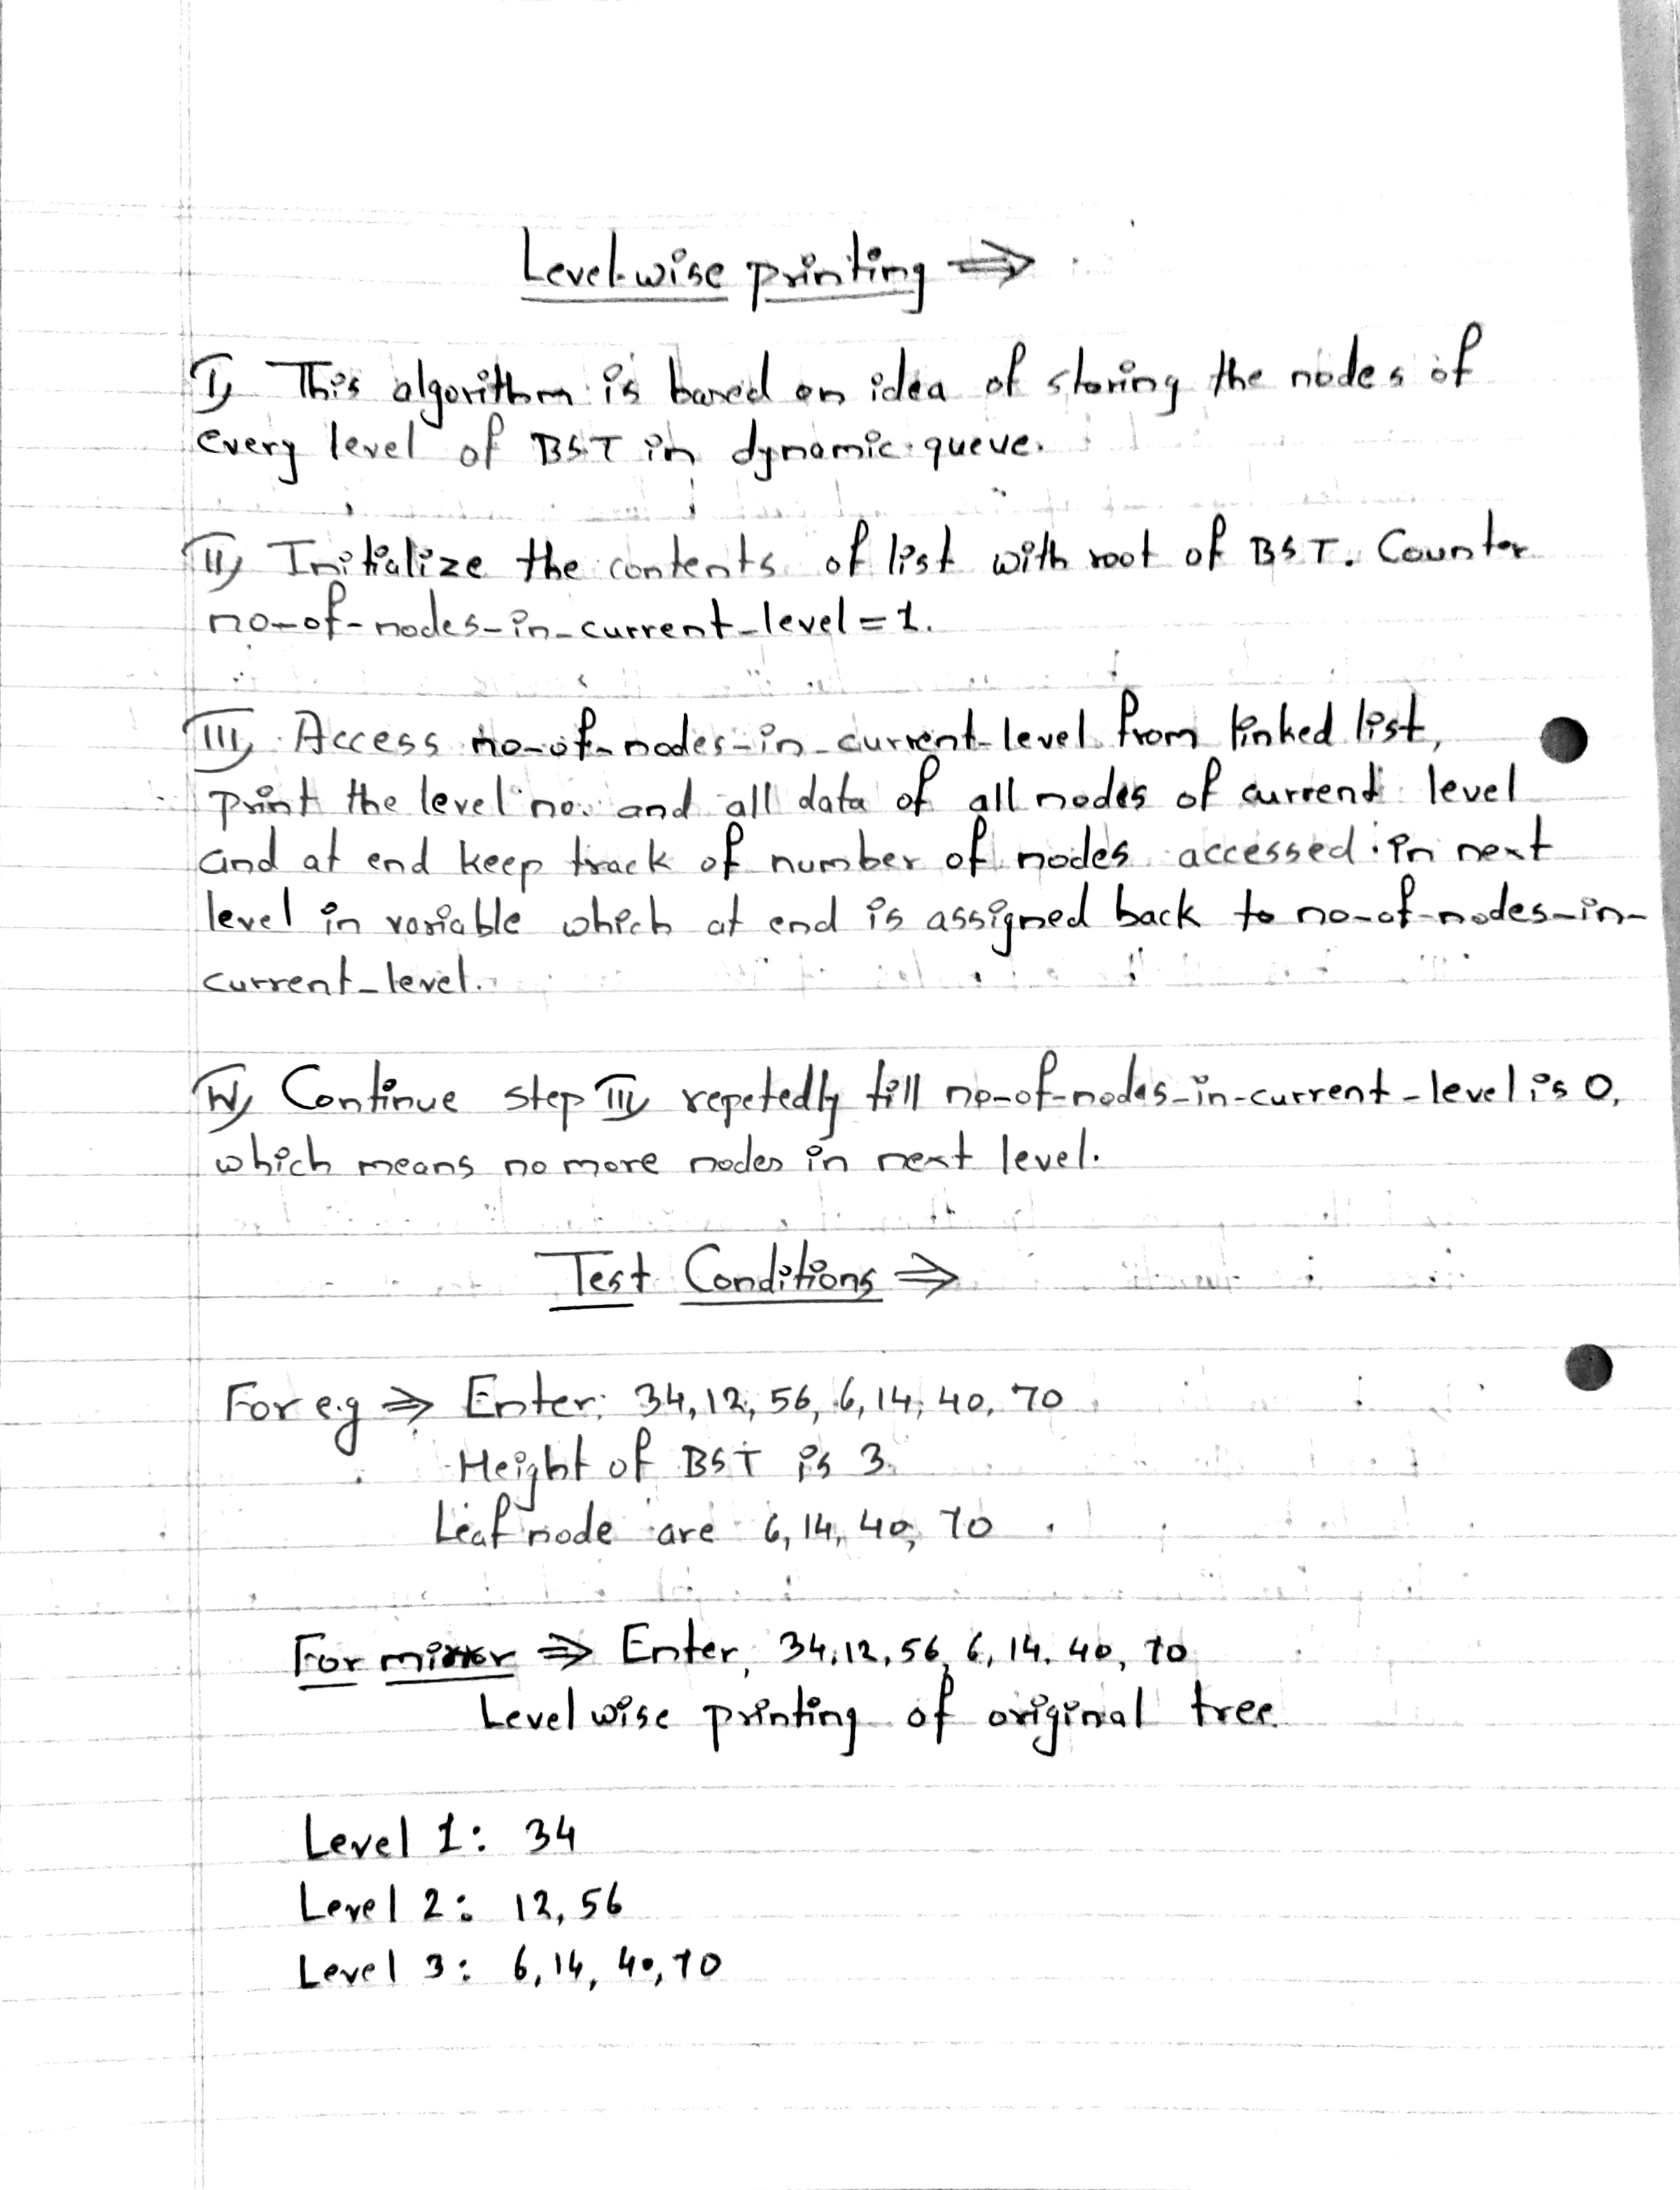 Level wise printing ⇒
I) This algorithm is based on idea of storing the nodes of
every level of BST in dynamic queue.
II) Initialize the contents of list with root of BST. Counter
no-of-nodes-in-current-level = 1.
III) Access no-of-nodes-in-current-level from linked list,
print the level no. and all data of all nodes of current level
and at end keep track of number of nodes accessed in next
level in variable which at end is assigned back to no-of-nodes-in-
current-level.
IV) Continue step III) repetedly till no-of-nodes-in-current-level is 0,
which means no more nodes in next level.
Test Conditions ⇒
For e.g ⇒ Enter: 34, 12, 56, 6, 14, 40, 70
Height of BST is 3.
Leaf node are 6, 14, 40, 70
For mirror ⇒ Enter, 34, 12, 56, 6, 14, 40, 70
Level wise printing of original tree.
Level 1: 34
Level 2: 12, 56
Level 3: 6, 14, 40, 70